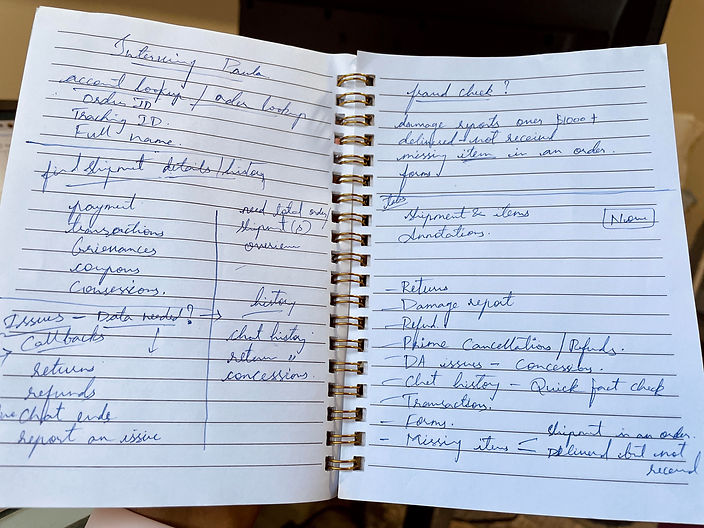 Interviewing Paula
account lookup / order lookup
Order ID
Tracking ID.
Full name.
find shipment details / history
payment
transactions
Grievances
coupons
Concessions.
need total order
shipment(s)
overview
history
chat history
return "
concessions.
Issues - Data needed? →
Callbacks
returns
refunds
chat ends
report an issue
fraud check?
damage reports over $1000+
delivered - not received
missing item in an order.
forms
tabs
shipment & items
Annotations.
- Returns
- Damage report
- Refund
- Prime Cancellations / Refunds.
- DA issues - Concessions.
- Chat history - Quick fact check
- Transactions.
- Forms.
- Missing items = shipment in an order.
Delivered but not
received